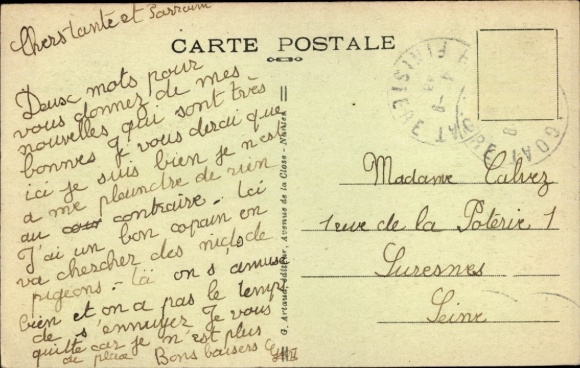 Cherstante et Parrain
CARTE POSTALE
Deuse mots pour
vous donnez de mes
nouvelles qui sont très
bonnes Je vous derai que
ici je suis bien je n'est
a me pleundre de rien
au contraire. Ici
J'ai un bon copain on
va chercher des nids de
pigeons. Là on s'amuse
bien et on a pas le temp
de s'ennuyez Je vous
quitte car je n'est plus
de place Bons baisers
G. Artaud, éditeur, Avenue de la Close - Nantes
FINISTERE
Madame Calvez
1 rue de la Poterie 1
Suresnes
Seine